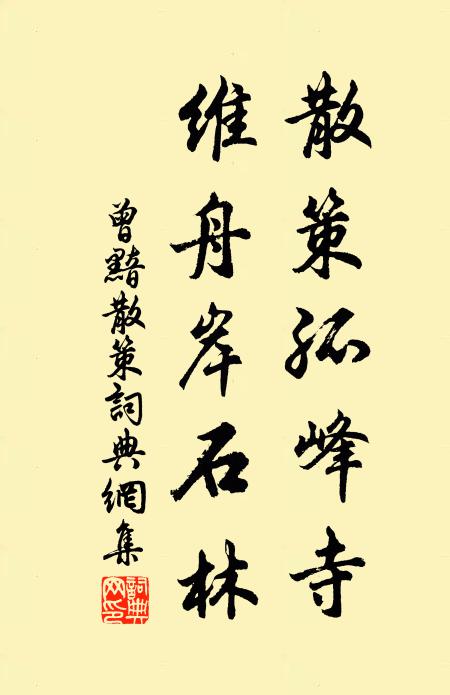 散策孤峰寺
維舟岸石林
曾黯散策詞典網集
詞典網印